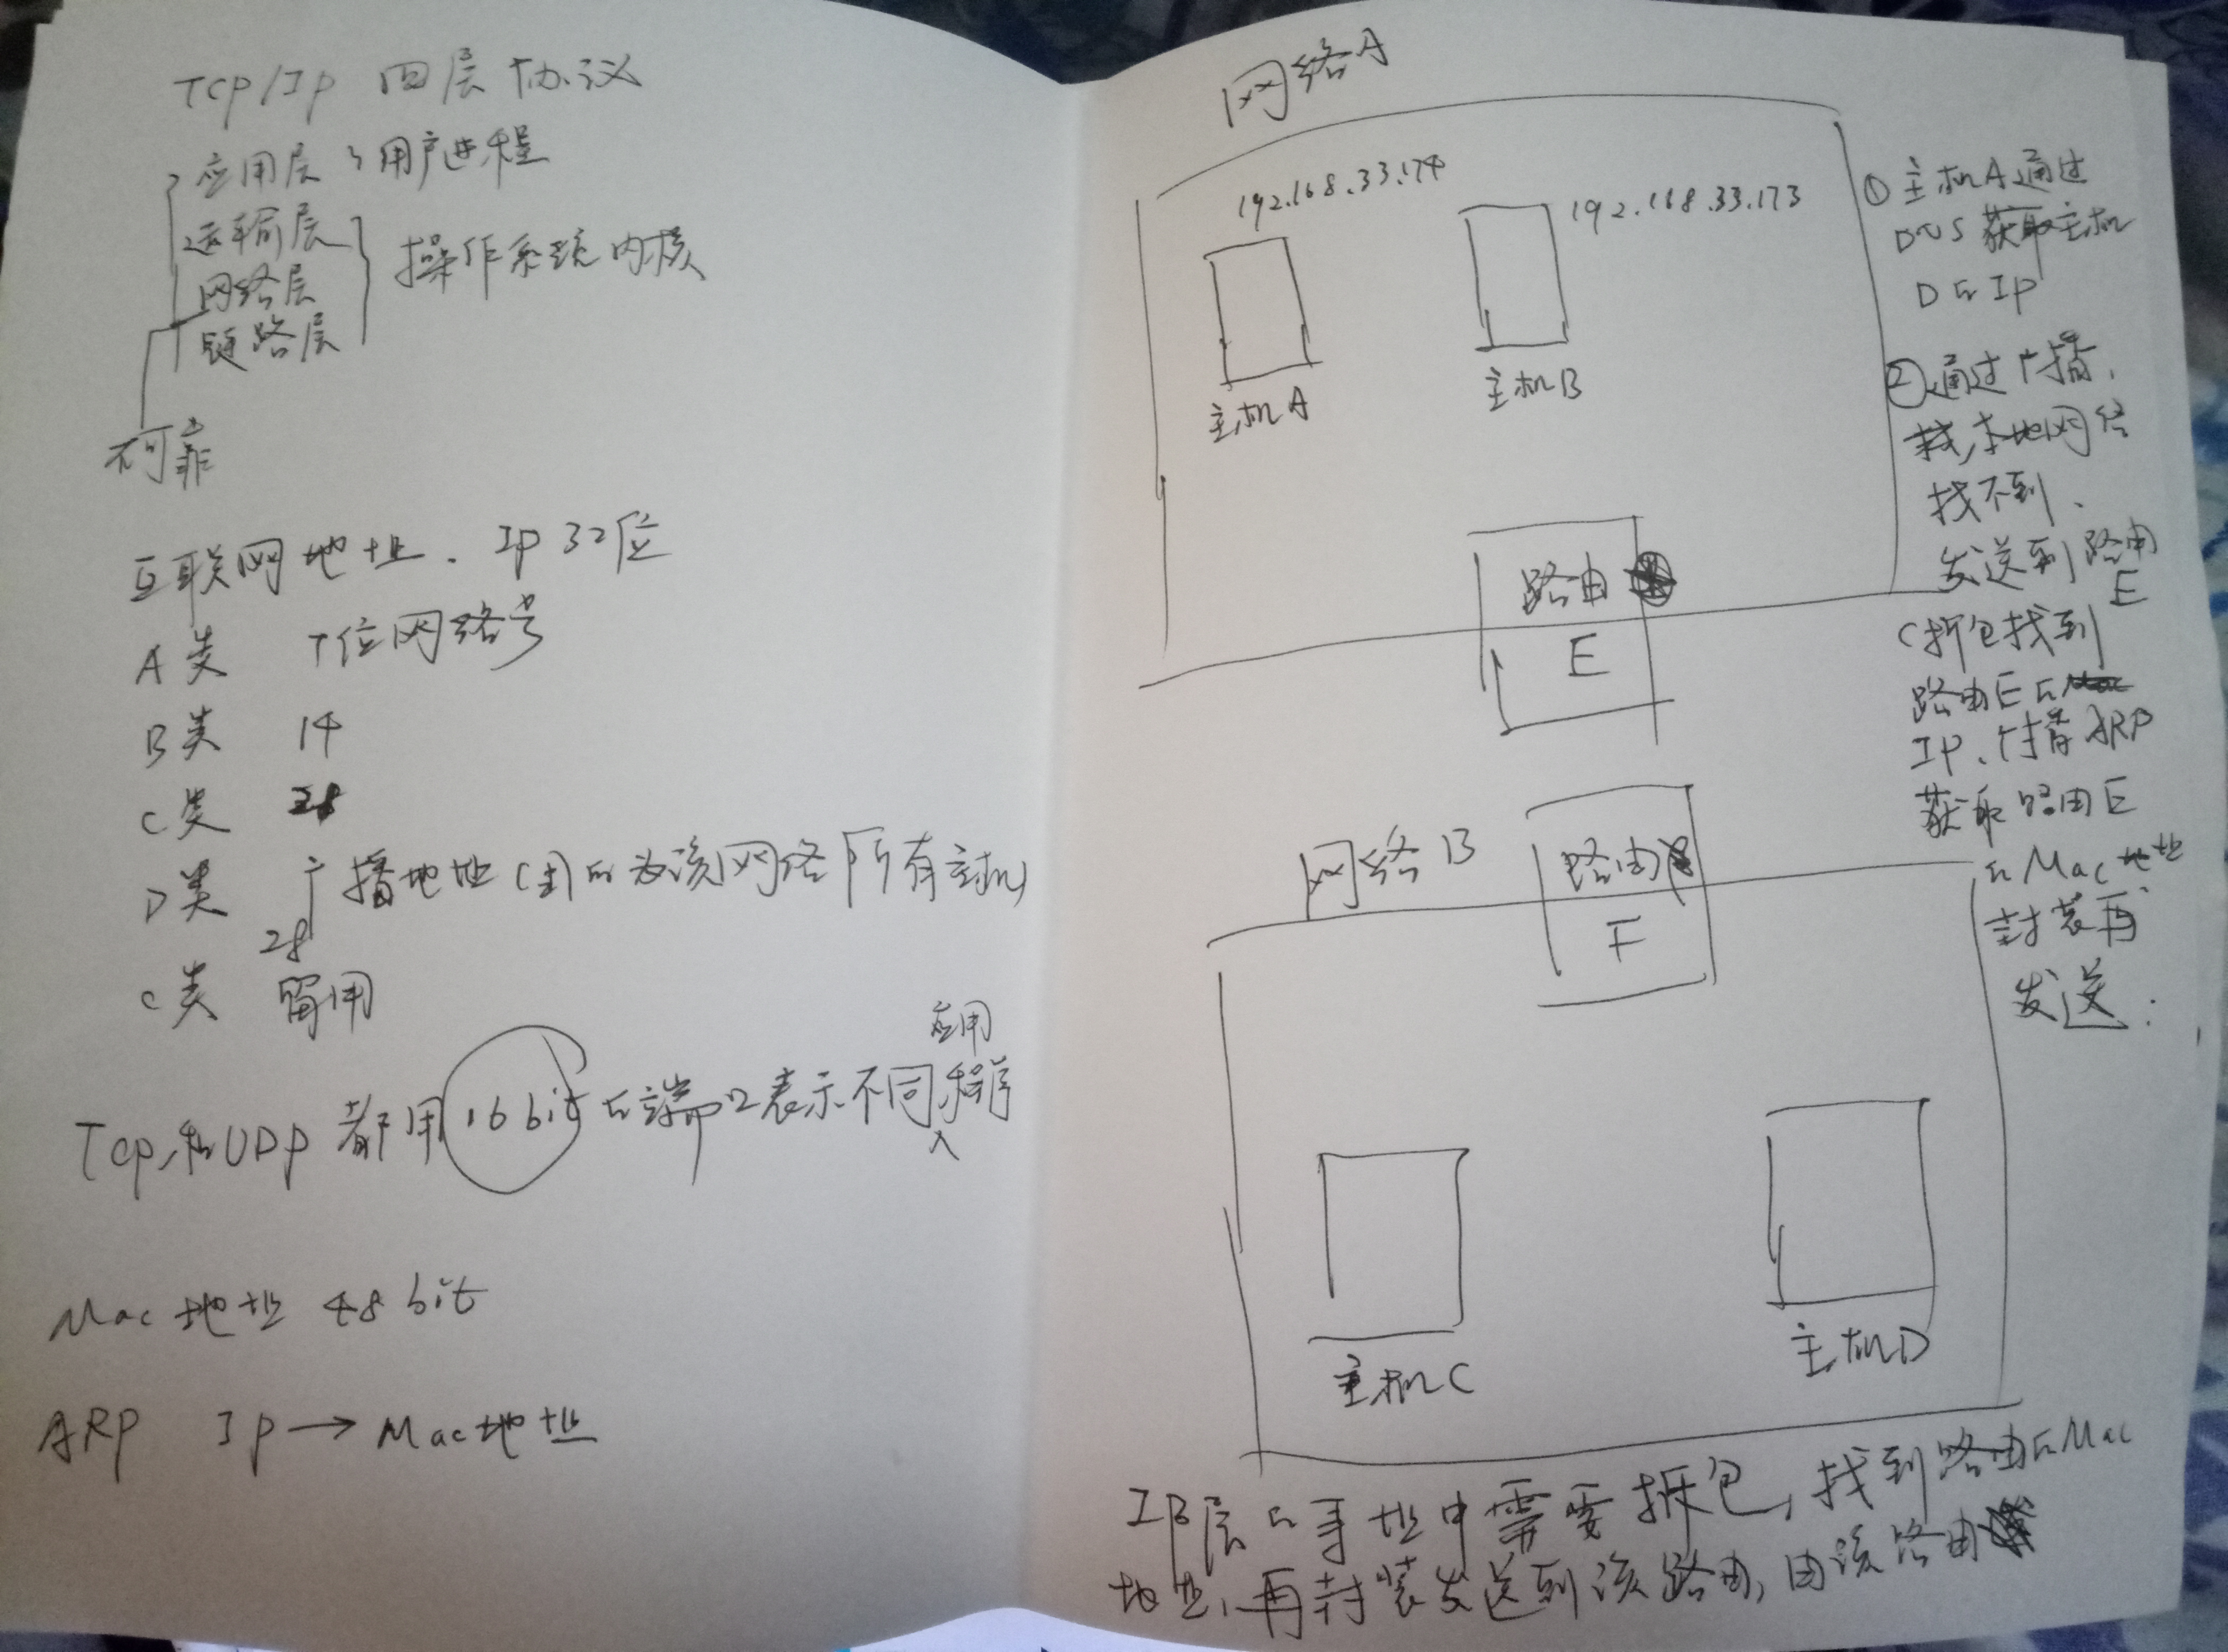 TCP/IP 四层协议
应用层 用户进程
运输层
网络层
链路层
操作系统内核
不可靠
互联网地址. IP 32位
A类 7位网络号
B类 14
C类
D类 广播地址(主机为该网络所有主机)
28
C类 留用
TCP和UDP 都用16bit的端口表示不同应用程序
Mac地址 48bit
ARP IP → Mac地址
网络A
192.168.33.174
192.168.33.173
主机A
主机B
路由
E
网络B
路由
F
主机C
主机D
① 主机A通过
DNS获取主机
D的IP
② 通过广播,
找本地网络
找不到.
发送到路由
E
(拆包找到
路由E的
IP、广播ARP
获取路由E
的Mac地址
封装再
发送.
IP层的寻址中需要拆包, 找到路由的Mac
地址, 再封装发送到该路由, 由该路由